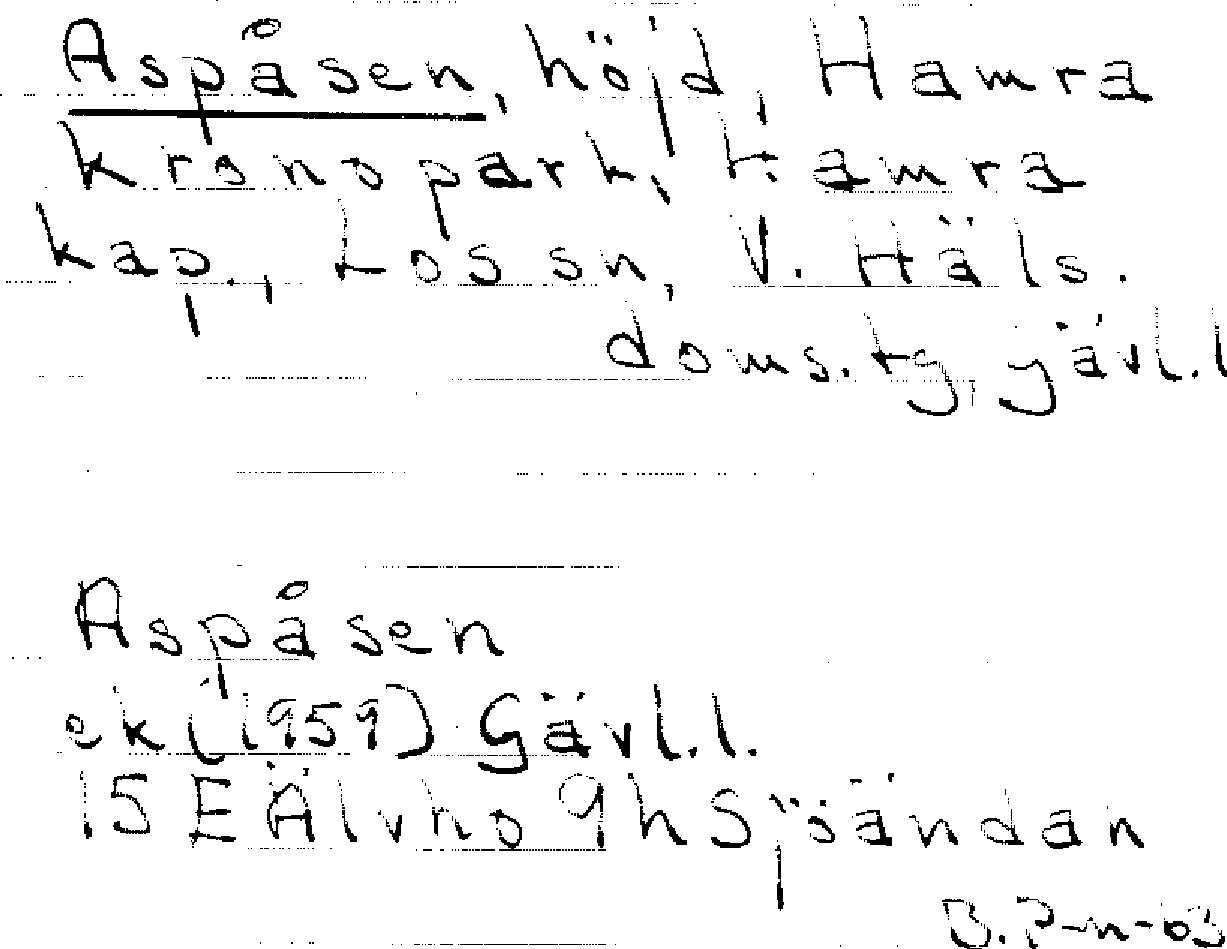 Aspåsen, höjd, Hamra
kronopark, Hamra
kap., Los sn, V. Häls.
doms.tg, Gävl.l
Aspåsen
ek (1959) Gävl.l.
15E Älvho 9h Sjöändan
B.P-n-63